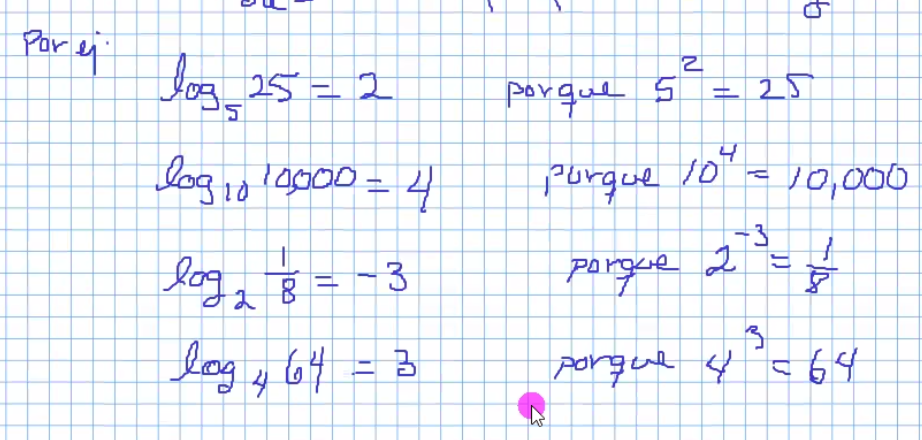 Por ej.
log₅ 25 = 2 porque 5² = 25
log₁₀ 10,000 = 4 porque 10⁴ = 10,000
log₂ 1/8 = -3 porque 2⁻³ = 1/8
log₄ 64 = 3 porque 4³ = 64